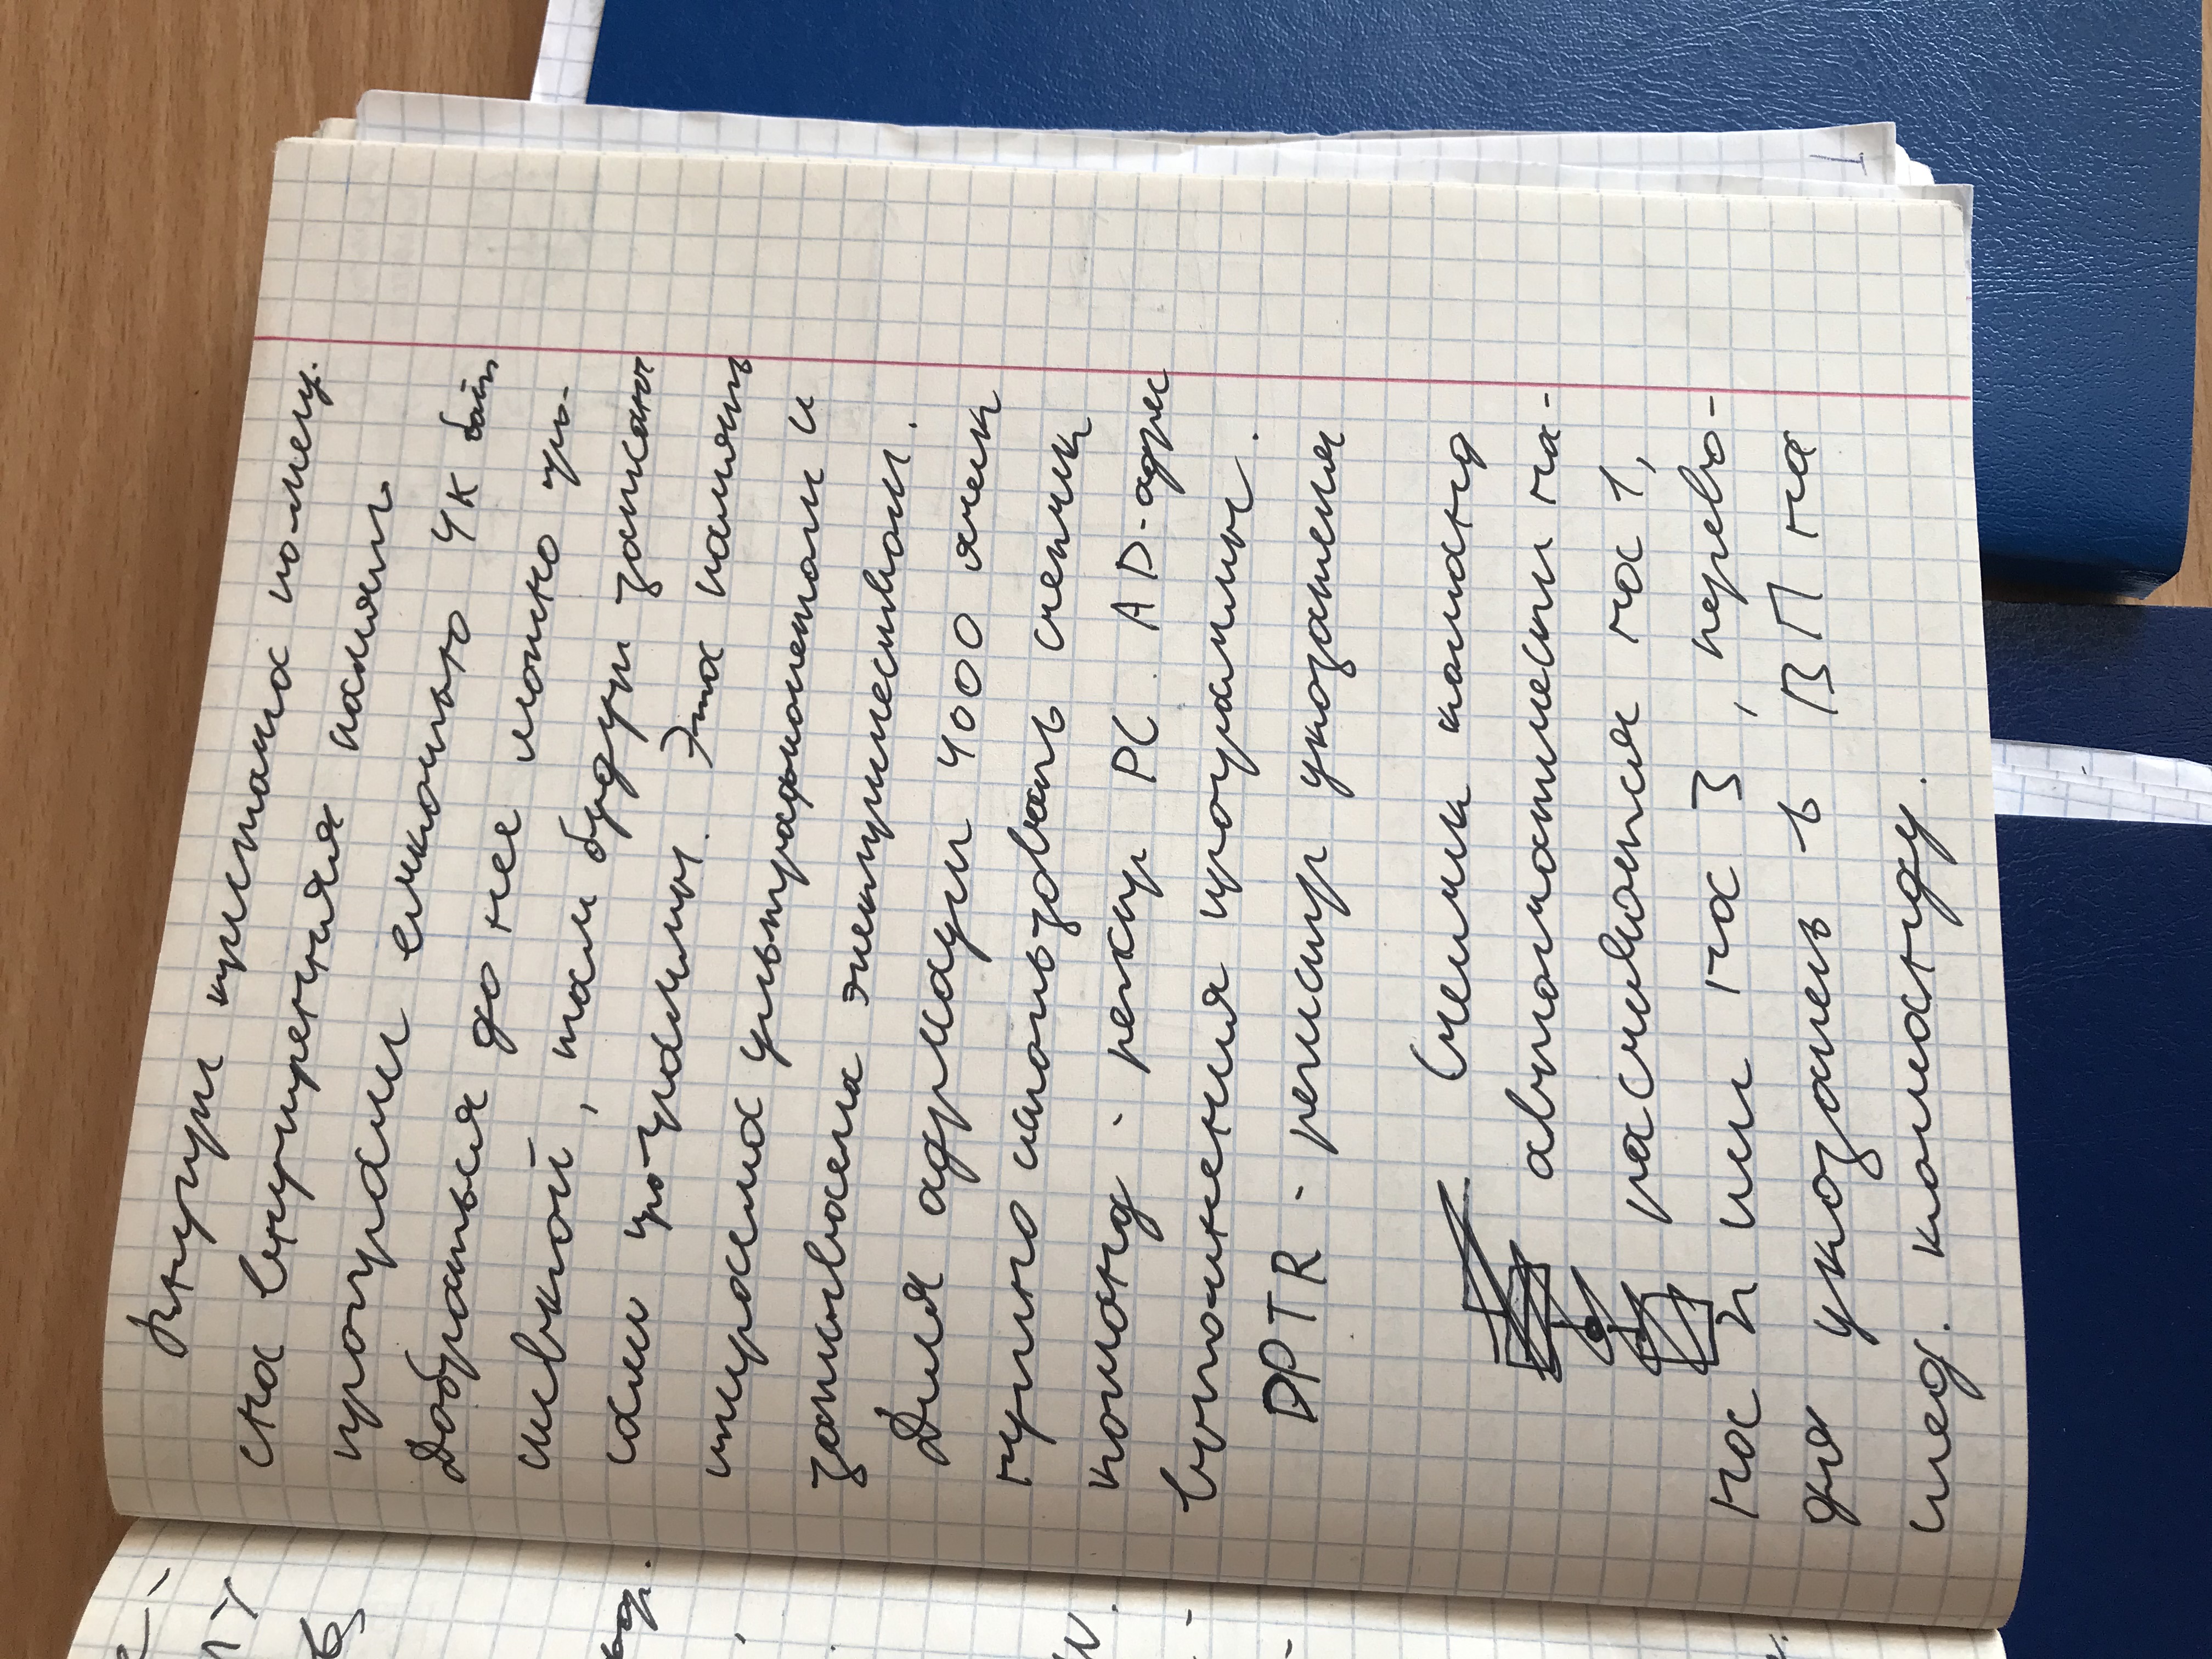 Внутри кристалла помещ.
ена внутренняя память
программ емкостью 4К байт
Добраться до нее можно про-
шивкой, там будут записаны
сами программы. Эта память
стираема ультрафиолетом и
записываема электричеством.
Для адресации 4000 ячеек
нужно использовать счетчик
команд - регистр PC. AD-адрес
выполнения программы.
DPTR - регистр указателя
Счетчик команд
автоматически на-
расчивается на 1,
на 2 или на 3, перево-
дя указатель в ВП на
след. команду.